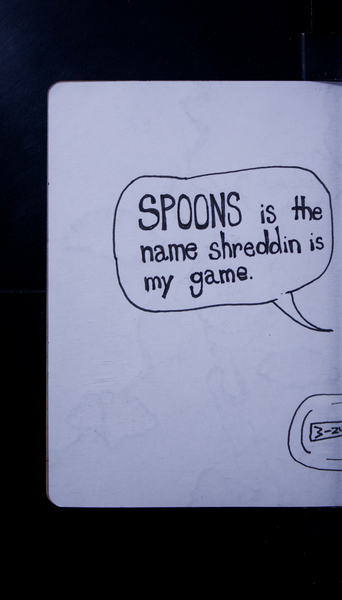 SPOONS is the
name shreddin is
my game.